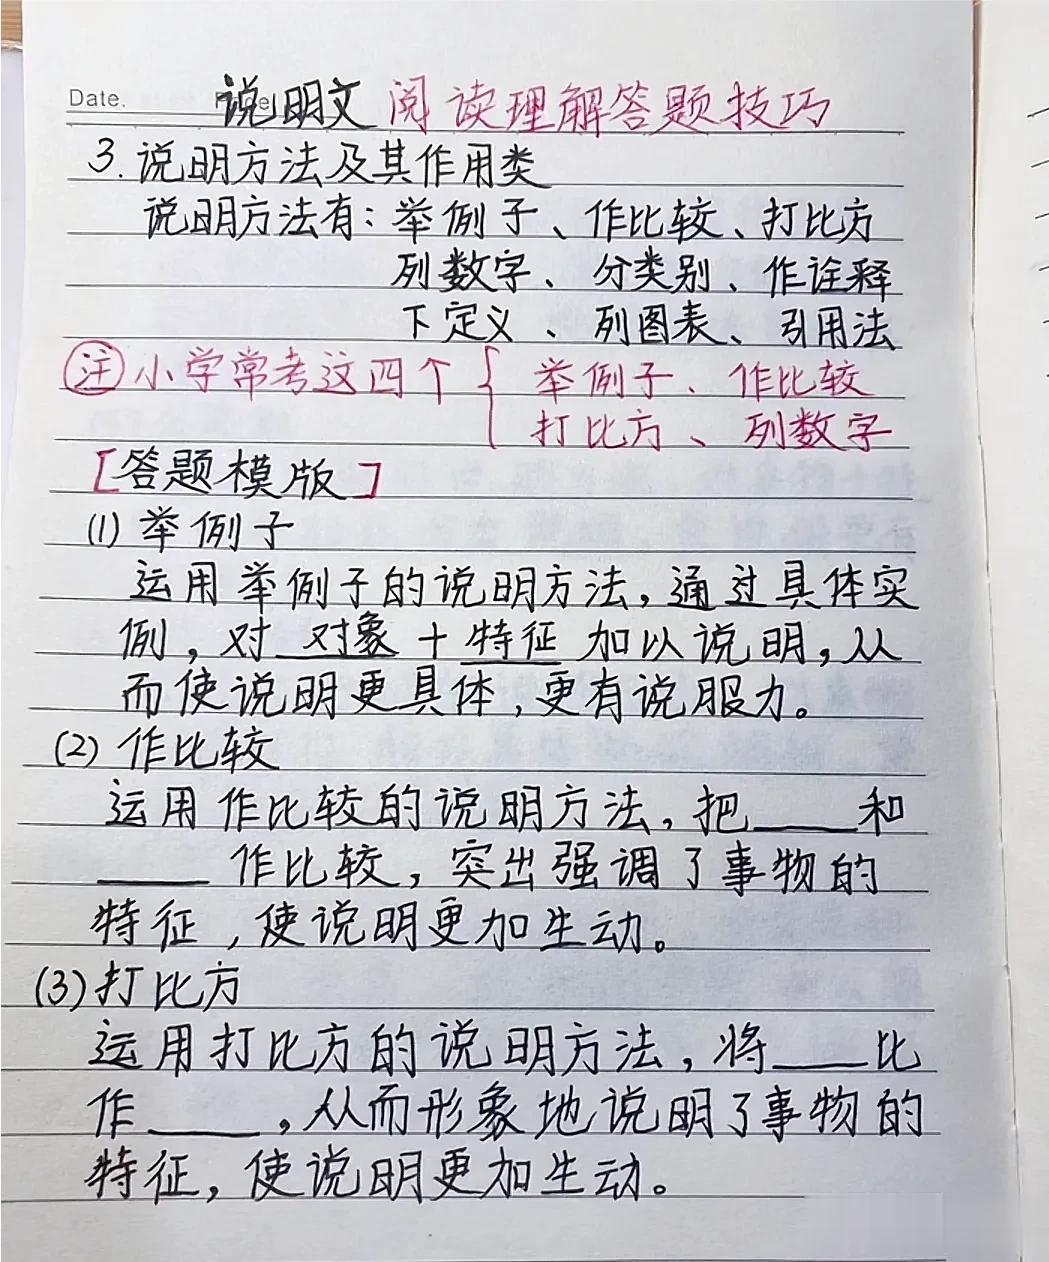 Date.
说明文 阅读理解答题技巧
3. 说明方法及其作用类
说明方法有：举例子、作比较、打比方
列数字、分类别、作诠释
下定义、列图表、引用法
注 小学常考这四个 { 举例子、作比较
打比方、列数字
[答题模版]
(1) 举例子
运用举例子的说明方法，通过具体实
例，对 对象 + 特征 加以说明，从
而使说明更具体，更有说服力。
(2) 作比较
运用作比较的说明方法，把____和
____ 作比较，突出强调了事物的
特征，使说明更加生动。
(3) 打比方
运用打比方的说明方法，将____比
作____，从而形象地说明了事物的
特征，使说明更加生动。